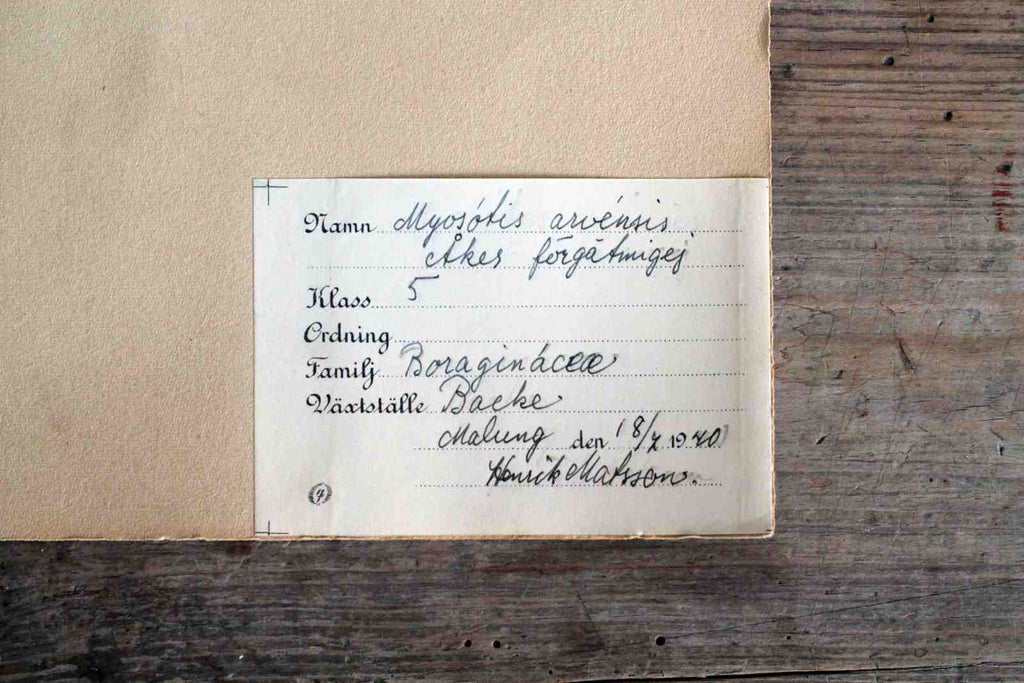 Namn Myosótis arvénsis
Åker förgätmigej
Klass 5
Ordning
Familj Boragináceæ
Växtställe Backe
Malung den 18/7 1940
Henrik Matsson.